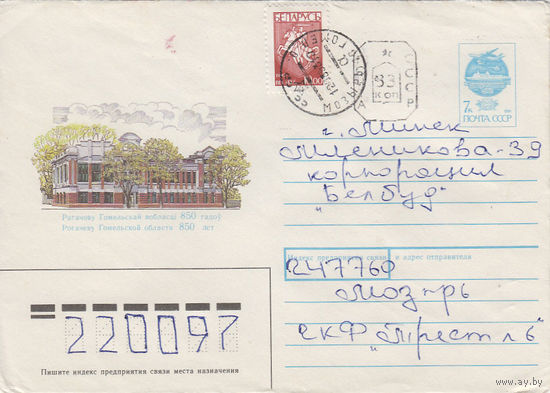 БЕЛАРУСЬ
МОЗЫРЬ
СССР
33
коп
7к
ПОЧТА СССР
г. Минск
Мележикова-39
корпорация
"Белбуд"
Рагачову Гомельскай вобласці 850 гадоў
Рогачеву Гомельской области 850 лет
Индекс предприятия связи и адрес отправителя
247760
Мозырь
СКФ "Трест-16"
220097
Пишите индекс предприятия связи места назначения
www.ay.by